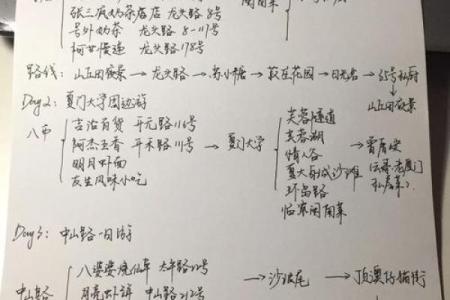 张三疯奶茶店 龙头路8号
闽南菜
号外奶茶 龙头路8-117号
柯甘慢递 龙头路178号
路线: 山丘田夜景→龙头路→苏小糖→菽庄花园→日光岩→35号私厨
↓
山丘田夜景
Day2: 厦门大学周边游
八市
吉治百货 开元路116号
阿杰五香 开禾路111号
明月虾面
友生风味小吃
→厦门大学
芙蓉隧道
芙蓉湖
情人谷
厦大白城沙滩
环岛路
临家闽南菜
→曾厝垵
私房菜
Day3: 中山路一日游
中山路
八婆婆烧仙草
月亮虾饼
→沙坡尾→顶澳仔猫街